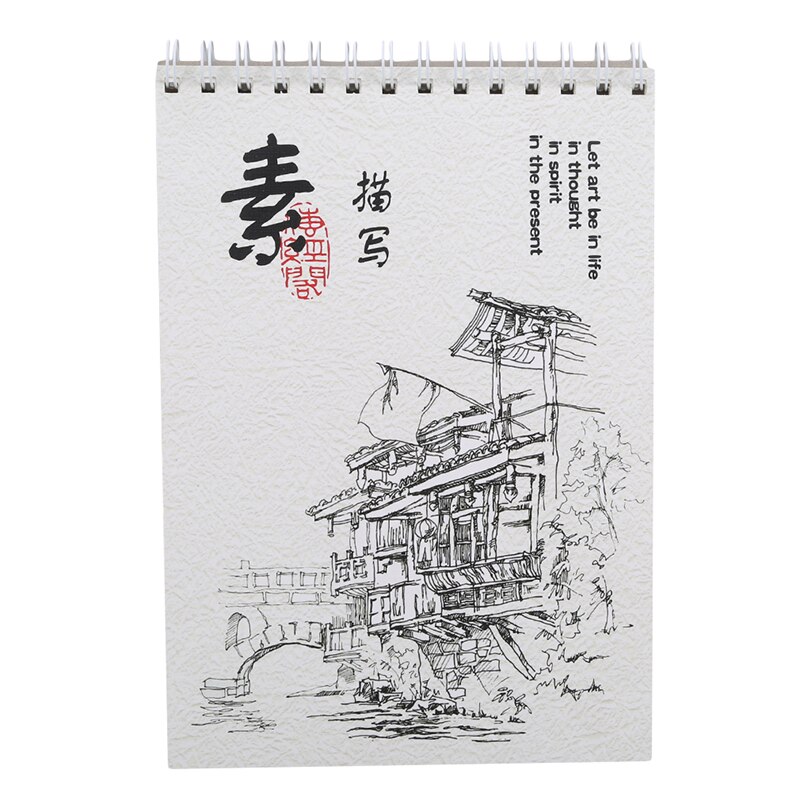 素
描
写
Let art be in life
in thought
in spirit
in the present